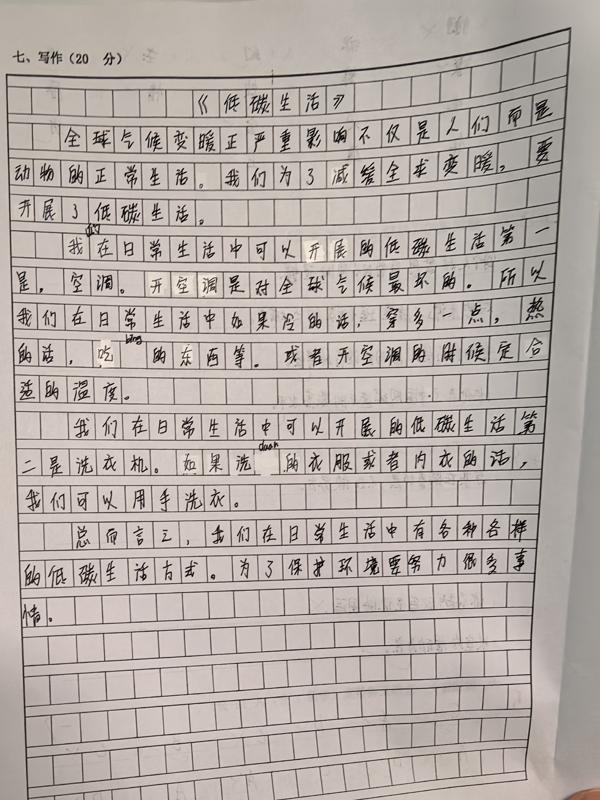 七、写作（20 分）
《低碳生活》
全球气候变暖正严重影响不仅是人们而是
动物的正常生活。我们为了减缓全球变暖，要
开展了低碳生活。
的
我在日常生活中可以开展的低碳生活第一
是，空调。开空调是对全球气候最坏的。所以
我们在日常生活中如果冷的话，穿多一点，热
bing
的话，吃 的东西等。或者开空调的时候定合
适的温度。
我们在日常生活中可以开展的低碳生活第
duan
二是洗衣机。如果洗 的衣服或者内衣的话，
我们可以用手洗衣。
总而言之，我们在日常生活中有各种各样
的低碳生活方式。为了保护环境要努力很多事
情。